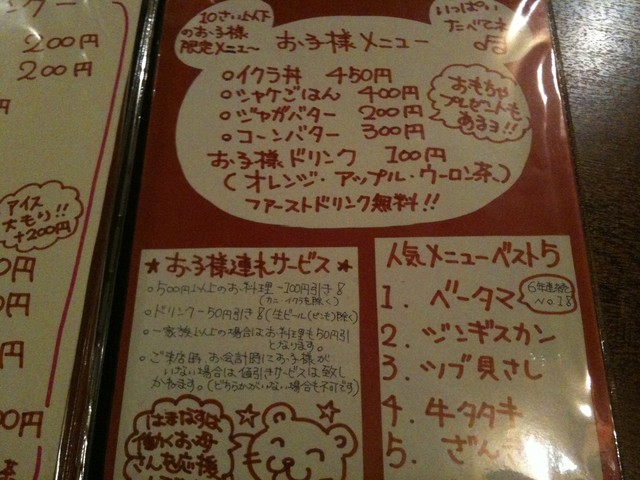 200円
200円
アイス
大もり!!
+200円
10さい以下
のお子様
限定メニュー
お子様メニュー
いっぱい
たべてネ
イクラ丼 450円
シャケごはん 400円
ジャガバター 200円
コーンバター 300円
おもちゃ
プレゼントも
あるヨ!!
お子様ドリンク 100円
(オレンジ・アップル・ウーロン茶)
ファーストドリンク無料!!
★お子様連れサービス★
500円以上のお料理→100円引き
(カニ・イクラも除く)
ドリンク→50円引き(生ビール(ピンも)除く)
一家族以上の場合はお料理も50円引
となります。
ご来店時、お会計時にお子様が
いない場合は値引きサービスは致し
かねます。(どちらかがいない場合も不可です)
はまなすは
働くお母
さんを応援
人気メニューベスト5
1. ベータマ
6年連続
No.1
2. ジンギスカン
3. ツブ貝さし
4. 牛タタキ
5. ざんぎ